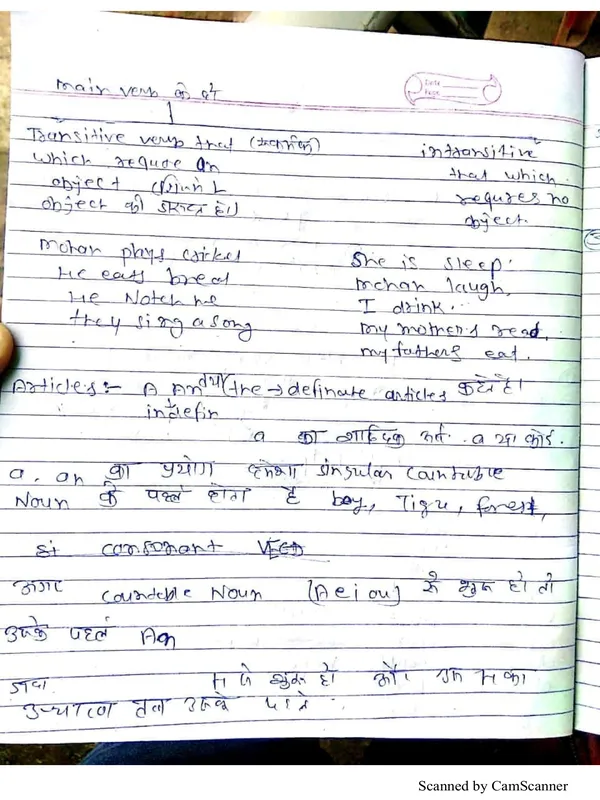 main verb के दो
Date
Page
Transitive verb that (सकर्मक)
which requre an
object
object की जरूरत है।)
intransitive
that which
requres no
object.
mohan plays cricket
He eats bread
He Notch me
they sing a song
She is sleep.
mohan laugh,
I drink.
my mothers read,
my fathers eat.
Articles:- A An (the → definate articles कहते है।
indefin
a का शाब्दिक अर्थ. a या कोई.
a. an का प्रयोग हमेशा singular countable
Noun के पहले होता है boy, Tigu, forest,
consonant
अगर countable Noun [Aeiou] से शुरू हो तो
उसके पहले An
से शुरू हो और का
उच्चारण उसके पहले
Scanned by CamScanner